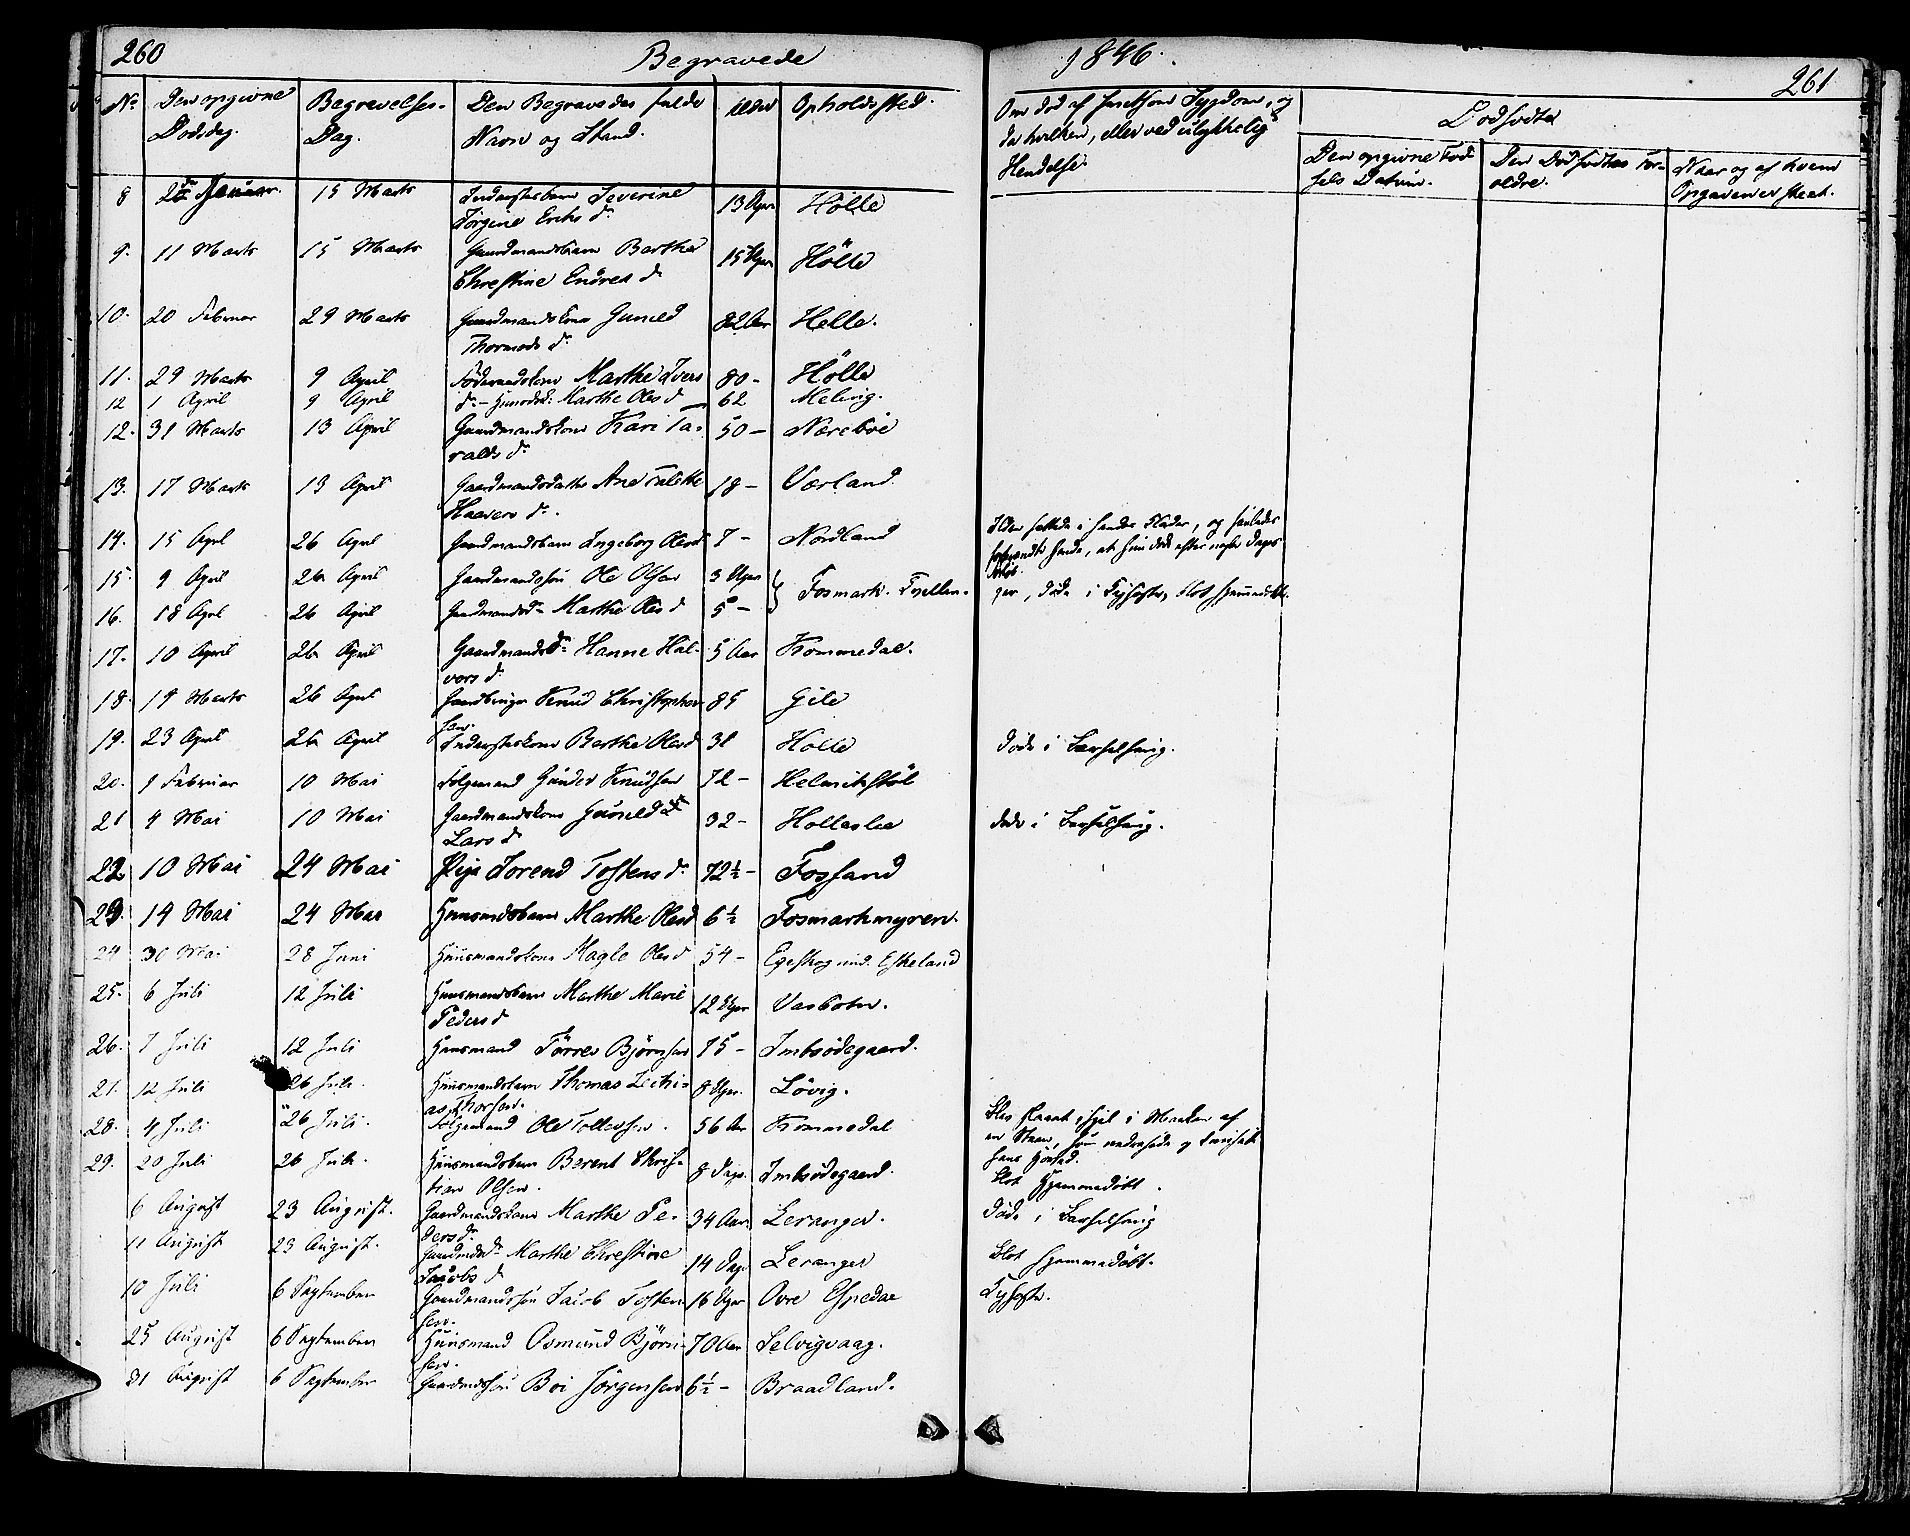 260 Begravede 1846. 261
No Den opgivne Dødsdag. Begravelses-Dag. Den Begravedes fulde Navn og Stand. Alder Opholdssted. Om død af smitsom Sygdom, og da hvilken, eller ved ulykkelig Hendelse. Dødfødte
Den opgivne Fødsels Datum. Den Dødfødtes Forældre. Naar og af hvem Opgaven er skeet.
8 Januar. 15 Marts Inderstesbarn Severine 13 Uger Hölle
Jörgine Erichs d.
9. 11 Marts 15 Marts Gaardmandsbarn Barthe 15 Uger Hölle
Christine Endres d.
10. 20 Februar 29 Marts Gaardmandskone Guneld 82 Aar Helle.
Thormods d.
11. 29 Marts 9 April Föderaadskone Marthe Ivers 80 - Hölle
12 1 April 9 April d. - Huusmdsk: Marthe Olesd 62 Meling.
12. 31 Marts 13 April Gaardmandskone Kari Ta- 50 - Næreböe
ralds d.
13. 17 Marts 13 April Gaardmandsdatter Ane Talette 18 - Værland
Haavers d.
14. 15 April 26 April Gaardmandsbarn Ingeborg Olesd 7 - Nordland Ilden fattede i hendes Klæder, og saaledes
forbrændte hende, at hun døde efter nogle Dages
15. 9 April 26 April Gaardmandssön Ole Olsen 3 Uger Fosmark.
16. 18 April 26 April Gaardmandsd. Marthe Olesd 5 -
17. 10 April 26 April Gaardmandsd. Hanne Hal- 5 Aar Kommedal.
vors d
18. 14 Marts 26 April Knud Christopher- 85 Gile
sen.
19. 23 April 26 April Indersteskone Barthe Olesd 31 Holle døde i Barselseng.
20. 9 Februar 10 Mai Folgemand Gunder Knudsen 72 - Helmikstöl
21 4 Mai 10 Mai Gaardmandskone Guneld 32 - Holleslee døde i Barselseng.
Lars d
22 10 Mai 24 Mai Pige Sorend Tostens d. 72½ - Fossand
23. 14 Mai 24 Mai Huusmandsbarn Marthe Olesd 6½ Fosmarkmyren.
24 30 Mai 28 Juni Huusmandskone Magle Olesd 54 - Egeskog und. Eskeland
25. 6 Juli 12 Juli Huusmandsbarn Marthe Marie 12 Uger Vasbotn.
Peders d
26. 7 Juli 12 Juli Huusmand Törres Björnsen 75 - Imbsödegaard.
27. 12 Juli 26 Juli. Huusmandsbarn Thomas Zachi- 8 Uger. Lövig.
as Thorsen.
28. 4 Juli 26 Juli. Folgemand Ole Tollevsen. 56 Aar Kommedal Blev i Marken af
en Steen, som nedrasede og
hans Hoved.
29. 20 Juli 26 Juli. Huusmandsbarn Berent Chris- 8 Dage. Imbsödegaard. blot Hjemmedøbt.
tian Olsen.
6 August 23 August. Gaardmandskone Marthe Pe- 34 Aar Leranger. døde i Barselseng
ders d.
11 August 23 August. Gaardmdsd. Marthe Christine 14 Dage Leranger blot hjemmedøbt.
Jacobs d
10 Juli 6 September Gaardmandssön Jacob Tosten- 16 Uger Ovre Espedal
sen.
25 August 6 September Huusmand Osmund Björn- 70 Aar Selvigvaag.
sen.
31 August 6 September Gaardmdssön Boi Jörgensen 6½ - Braadland.